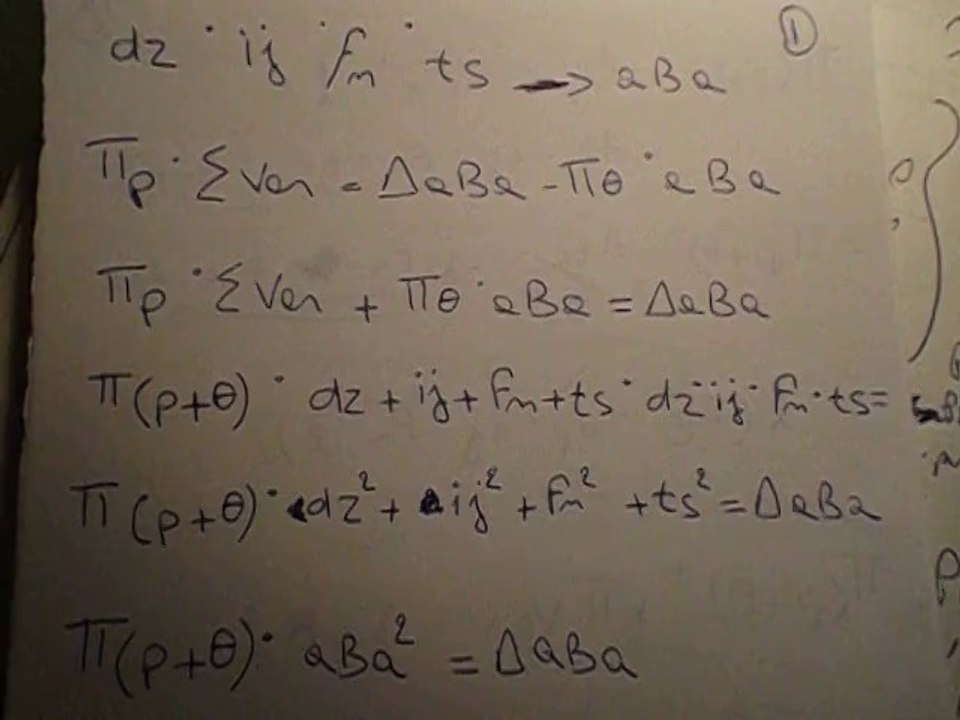 ①
dz · ij · fm · ts → aBa
πp · Σ ver = ΔaBa - πθ · aBa
πp · Σ ver + πθ · aBa = ΔaBa
π(p+θ) · dz + ij + fm + ts · dz · ij · fm · ts =
π(p+θ) · dz² + ij² + fm² + ts² = ΔaBa
π(p+θ) · aBa² = ΔaBa